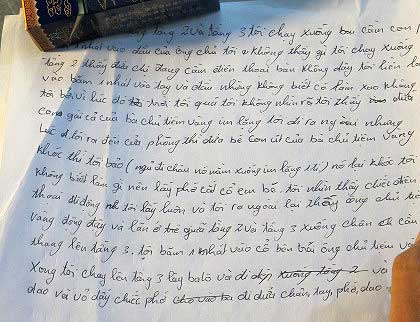 tầng 2 và tầng 3 tôi chạy xuống bou cầm con
nhát vào đầu của ông chủ tôi k không thấy gì tôi chạy xuống
tầng 2 thấy đứa chị đang cầm điện thoại bàn không dây tôi liền
vào bằm 1 nhát vào tay và đầu nhưng không biết có làm xao không
tôi bởi vì lúc đó trời tối quá tôi không nhìn rõ tôi thấy đứa
con gái cả của bà chủ tiệm vàng im lặng tôi đi ra ngoài nhưng
lúc đi tới ra đến cửa phòng thì đứa bé con út của bà chủ tiệm vàng
khóc thì tôi bảo (ngủ đi cháu nó nằm xuống im lặng ) nó lại khóc tôi
không biết làm gì nên lấy phớ cắt cổ em bé. tôi nhìn thấy chiếc điện
thoại di động tôi lấy luôn và tôi ra ngoài lại thấy ông chủ tiệ
vàng động đậy và lăn ở giữa tầng 2 và tầng 3 xuống chân cầ
thang lên tầng 3. tôi bằm 1 nhát vào cổ bên trái ông chủ tiệm và
Xong tôi chạy lên tầng 3 lấy balô và đi xuống tầng 2 và
dao và vỏ đây chiếc phớ cho vào ba đi dưới chân, tay, phớ, dao